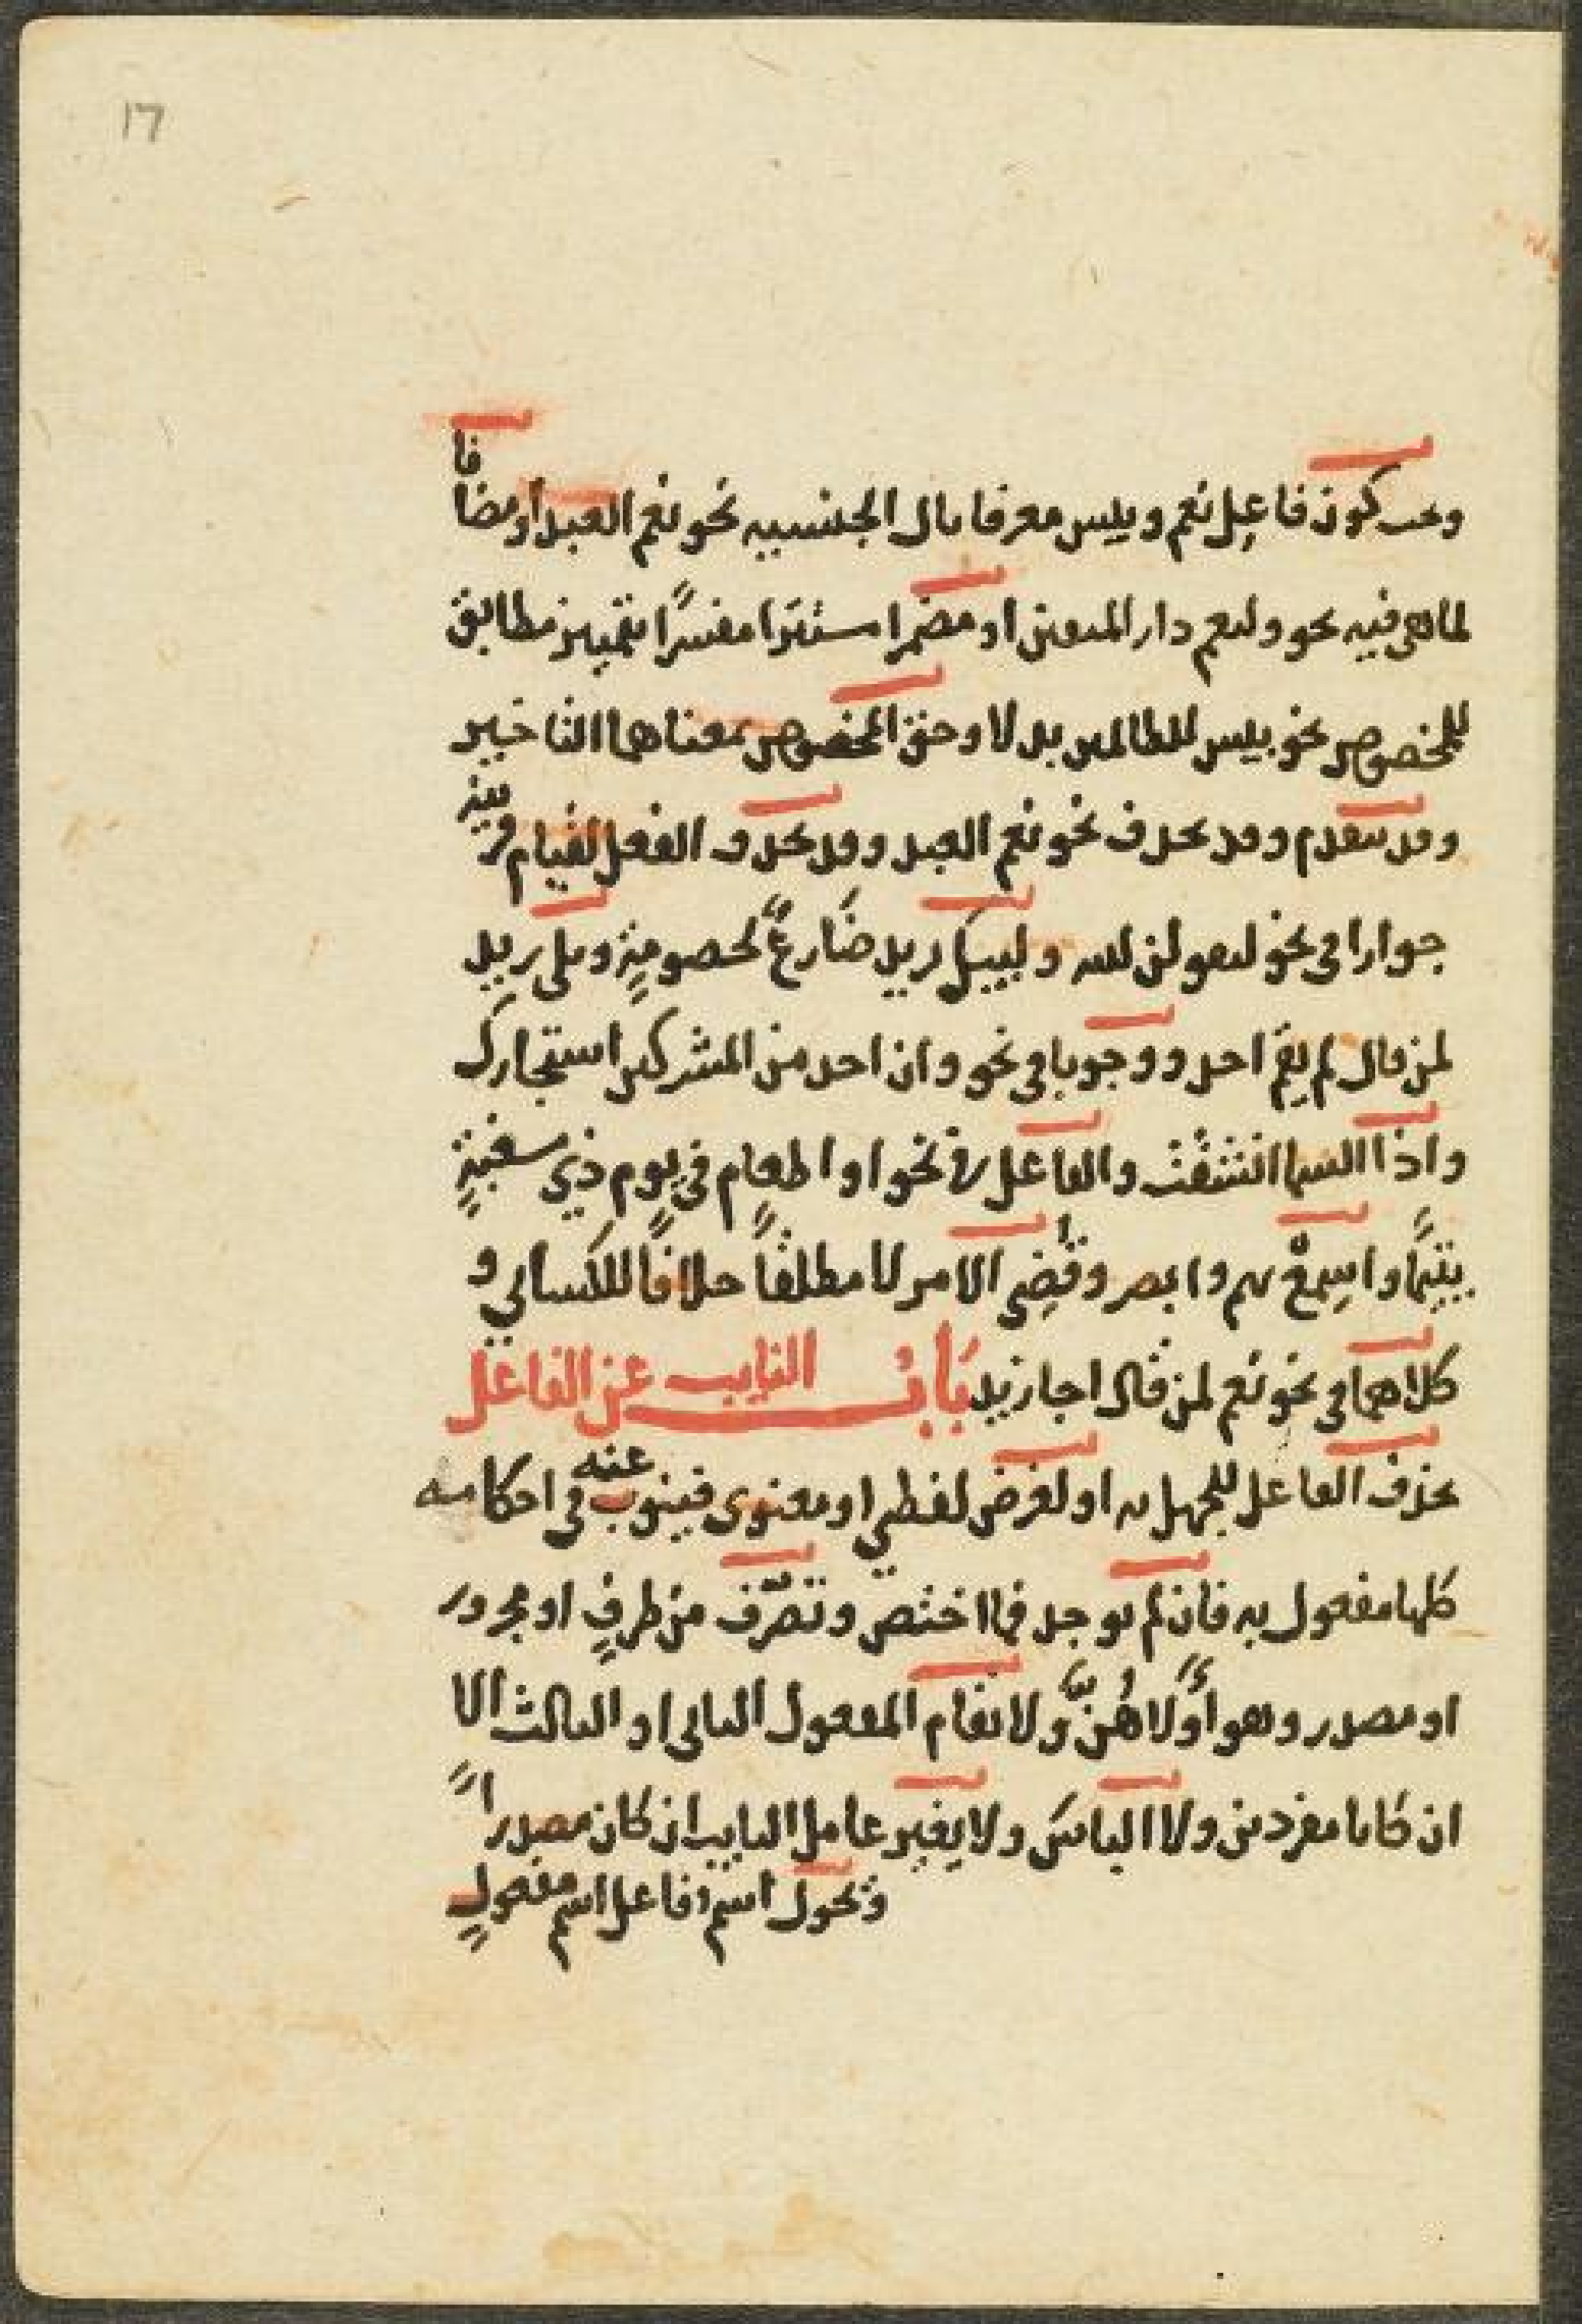 17
ويجب كون فاعل نعم وبيس معرفا بال الجنسيه نحو نعم العبد او مضافا
لما هي فيه نحو ولنعم دار المتقين او مضمرا مستترا مفسرًا بتمييز مطابق
للمخصوص نحو بيس للظالمين بدلا وحق المخصوص بمعناها التاخير
وقد يتقدم وقد يحذف نحو نعم العبد وقد يحذف الفعل لقيام قرينة
جوازا في نحو ليقولن لله وليبك زيد ضَارعٌ لخصومةٍ وبلى زيد
لمن قال لم يقم احد ووجوبا في نحو وان احد من المشركين استجارك
واذا السما انشقت والفاعل في نحو او اطعام في يوم ذي مسغبةٍ
يتيمًا واسمعْ بهم وابصر وقُضِي الامر لا مطلقاً خلافًا للكسائي و
كلاهما في نحو نعم لمن قال اجا زيد بَابُ النايب عن الفاعل
يحذف الفاعل للجهل به او لغرض لفظي او معنوي فينوب عنه في احكامه
كلها مفعول به فان لم يوجد فما اختص وتصَّرف من ظرفٍ او مجرور
او مصدر وهو أولاهُنَّ ولا تقام المفعول الثاني او الثالث الا
ان كانا مفردين ولا الباس ولا يغير عامل النايب ان كان مصدراً
وتحول اسم فاعل اسم مفعولٍ